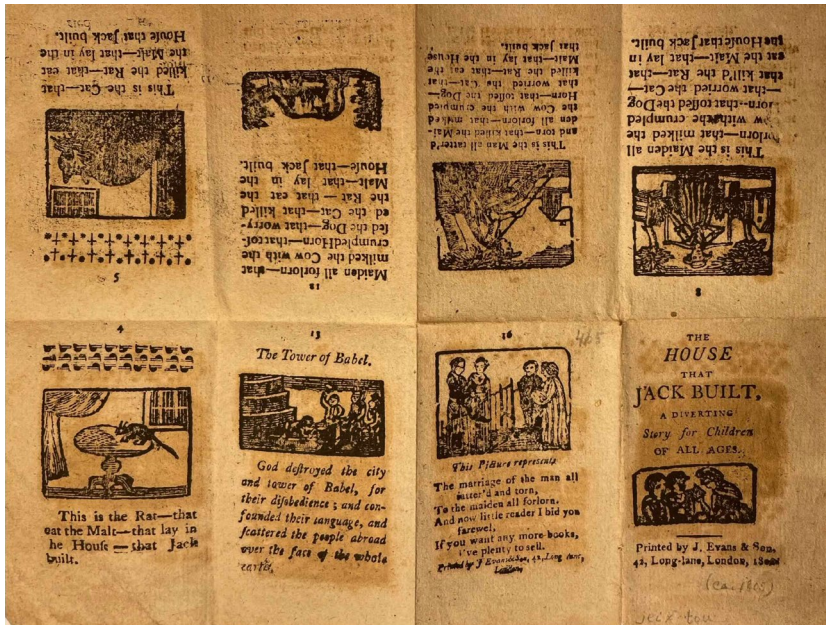 5
This is the Cat—that
killed the Rat—that eat
the Malt—that lay in the
Houſe that Jack built.
12
Maiden all forlorn—that
milked the Cow with the
crumpled Horn—that toſ-
ſed the Dog—that worry-
ed the Cat—that killed
the Rat—that eat the
Malt—that lay in the
Houſe that Jack built.
This is the Man all tatter'd
and torn—that kiſſed the Mai-
den all forlorn—that milked
the Cow with the crumpled
Horn—that toſſed the Dog—
that worried the Cat—that
killed the Rat—that eat the
Malt—that lay in the Houſe
that Jack built.
8
This is the Maiden all
forlorn—that milked the
w with the crumpled
orn—that toſſed the Dog
—that worried the Cat—
that kill'd the Rat—that
eat the Malt—that lay in
the Houſe that Jack built.
4
This is the Rat—that
eat the Malt—that lay in
he Houſe—that Jack
built.
13
The Tower of Babel.
God deſtroyed the city
and tower of Babel, for
their diſobedience; and con-
founded their language, and
ſcattered the people abroad
over the face of the whole
earth.
16
465
This Picture repreſents
The marriage of the man all
tatter'd and torn,
To the maiden all forlorn.
And now little reader I bid you
farewel,
If you want any more books,
I've plenty to sell.
Printed by J Evans & Son, 42, Long lane,
London.
THE
HOUSE
THAT
JACK BUILT,
A DIVERTING
Story for Children
OF ALL AGES.
Printed by J. Evans & Son,
42, Long-lane, London,